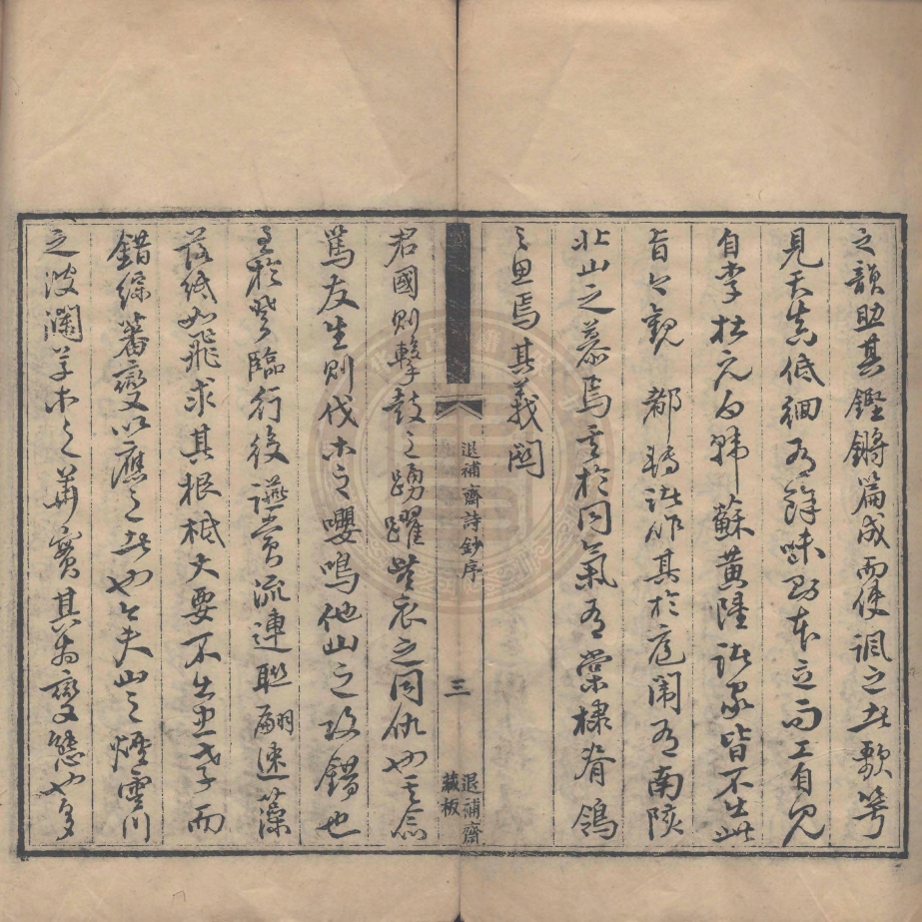 之韻助其鏗鏘篇成而使諷之者歌
見天真低徊有餘味本立而工自見
自李杜元白韓蘇黃陸諸家皆不出此
旨今觀 都轉諸作其於庭闈有南陔
北山之慕焉其於同氣有棠棣脊鴒
之思焉其義關
退補齋詩鈔序
三
退補齋
藏板
君國則鼙鼓之踴躍無衣之同仇也其念
篤友生則伐木之嚶鳴他山之攻錯也
至於登臨行役讌賞流連聯翩速藻
落紙如飛求其根柢大要不出忠孝而
錯綜蕃變以應之者也今夫山之煙雲川
之波瀾草木之華實其為變態也多